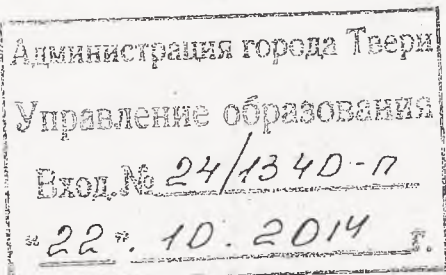 Администрация города Твери
Управление образования
Вход. № 24/1340-п
"22". 10. 2014 г.